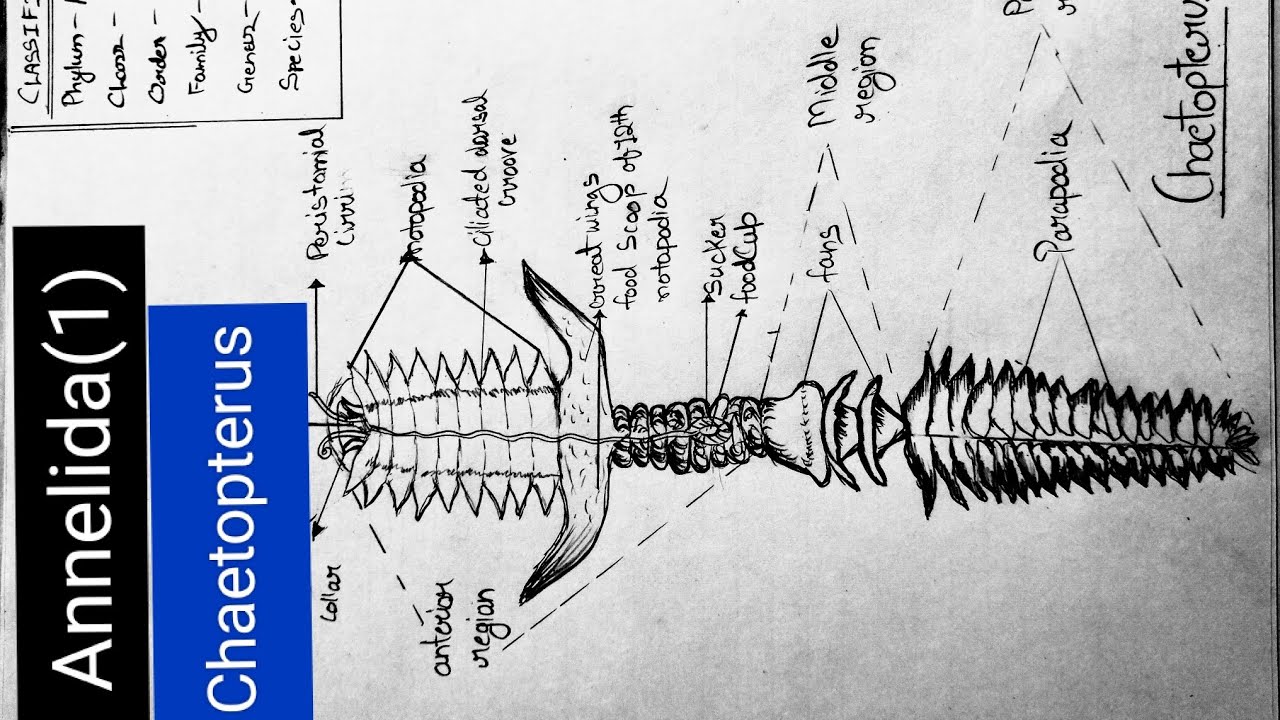 Annelida(1)
Chaetopterus
CLASSIF
Phylum-
Class-
Order-
Family-
Genus-
Species-
Peristomial
Cirri
Notopodia
Ciliated dorsal
Groove
Great wings
food scoop of 12th
notopodia
Sucker
foodCup
fans
Middle
region
Parapodia
Collar
anterior
region
Chaetopterus